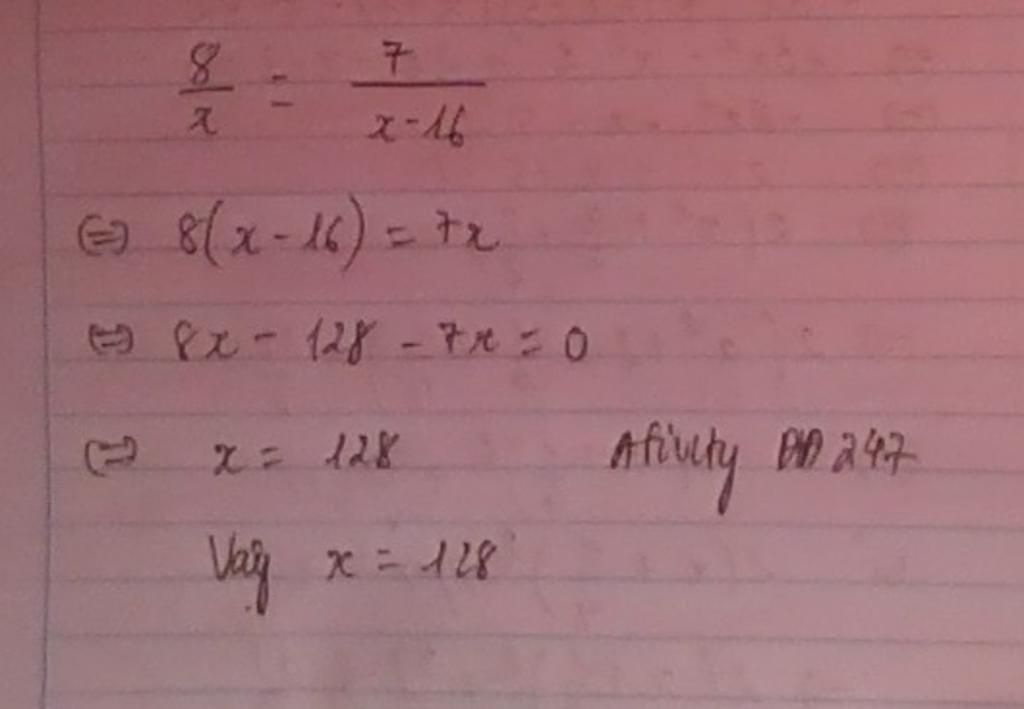 8/x = 7/(x-16)
⇔ 8(x-16) = 7x
⇔ 8x - 128 - 7x = 0
⇔ x = 128 247
Vậy x = 128